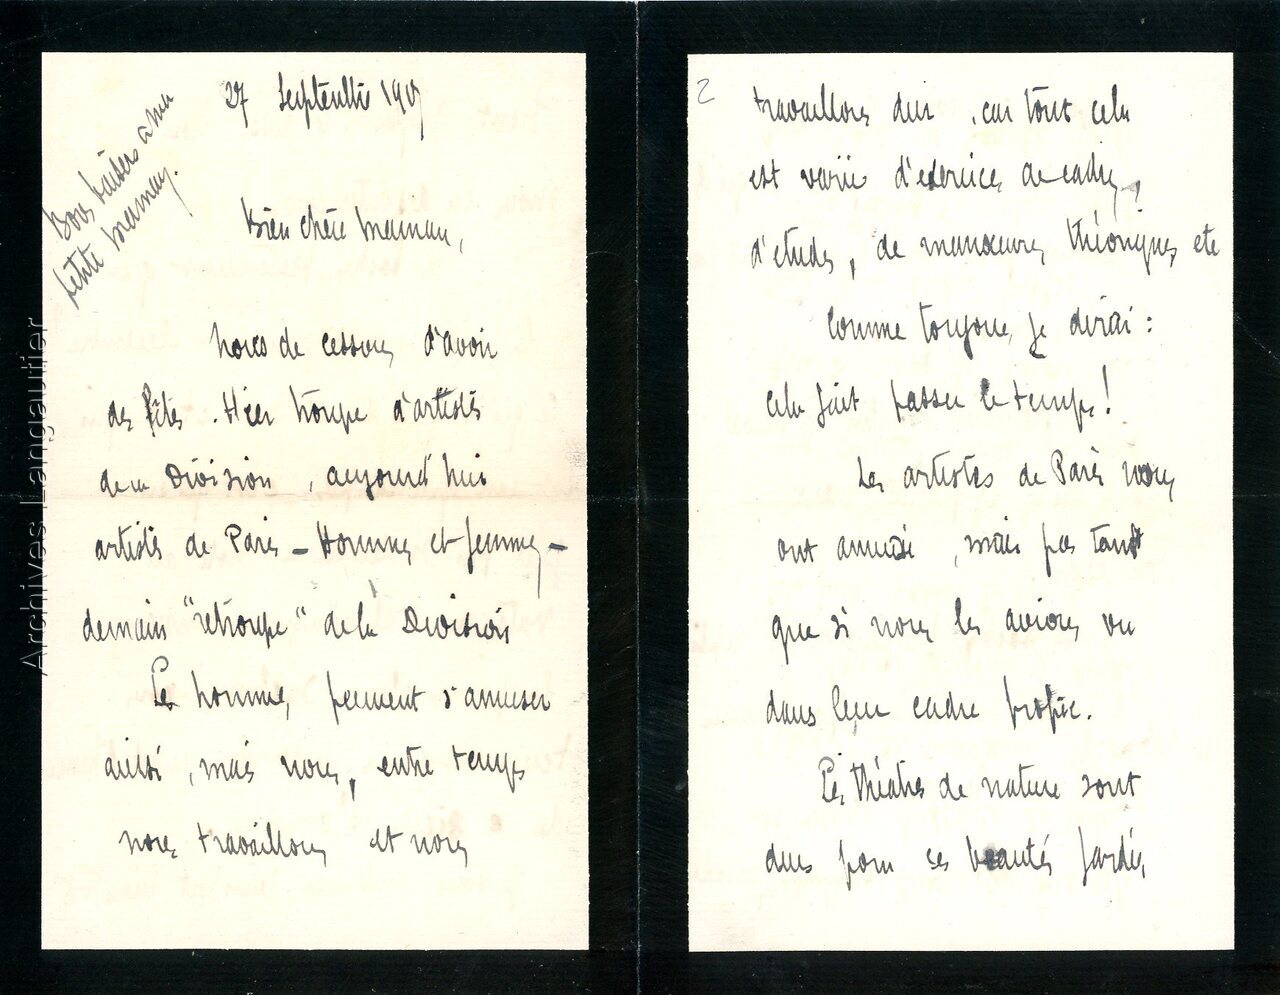 27 Septembre 1917
Bons baisers à ma
petite maman.
Bien chère maman,
Nous de cessons d'avoir
des fêtes. Hier troupe d'artistes
de la Division, aujourd'hui
artistes de Paris – Hommes et femmes –
demain "retroupe" de la Division
Les hommes peuvent s'amuser
ainsi, mais nous, entre temps
nous travaillons et nous
2
travaillons dur, car tout cela
est varié d'exercices de cadres,
d'études, de manœuvres théoriques etc
Comme toujours, je dirai :
cela fait passer le temps !
Les artistes de Paris nous
ont amusé, mais pas tant
que si nous les avions vu
dans leur cadre propre.
Les théâtres de nature sont
durs pour ces beautés fardées,
Archives Langautier